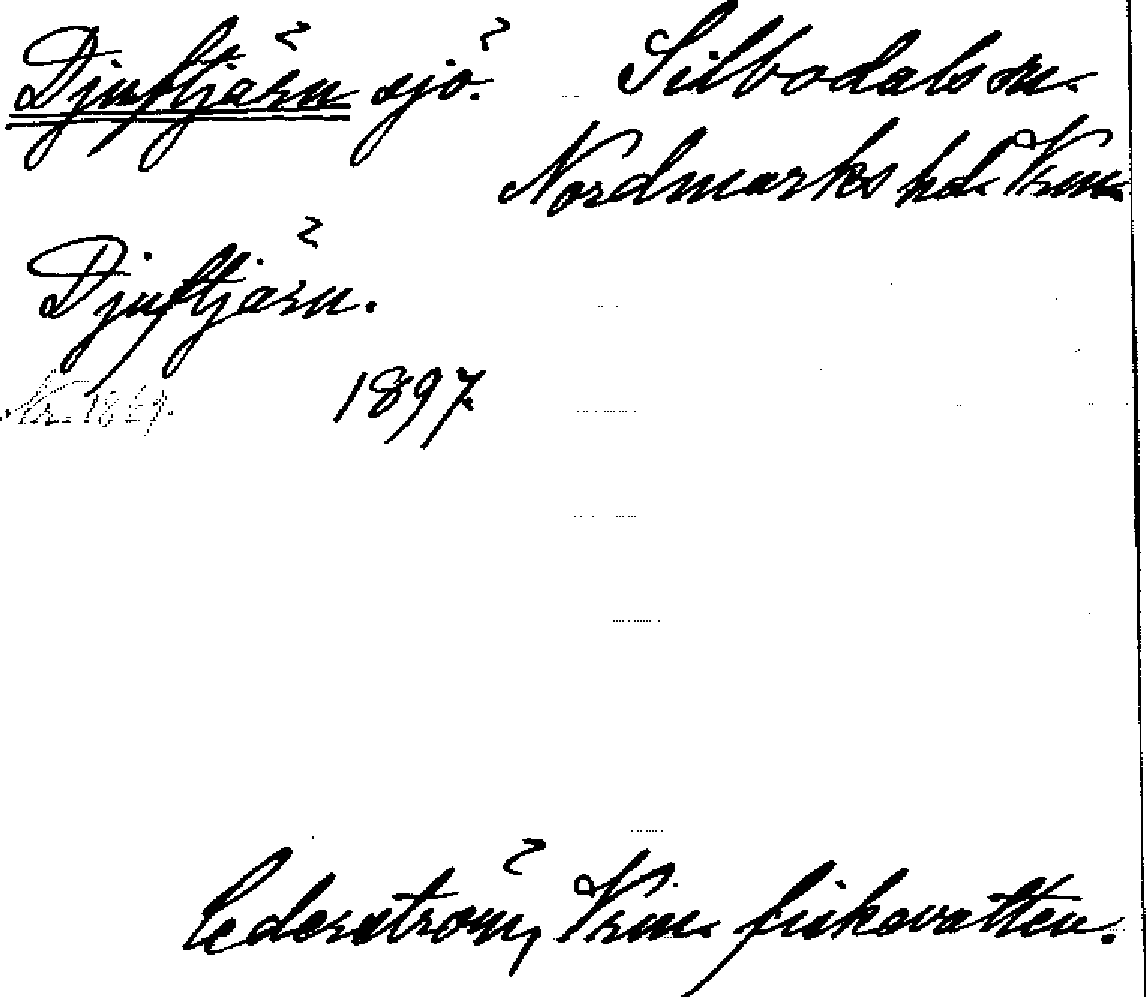 Djuftjärn sjö. Silbodals sn.
Nordmarks hd. Vrm.
Djuftjärn.
1897.
Cederström, Vrm. fiskevatten.